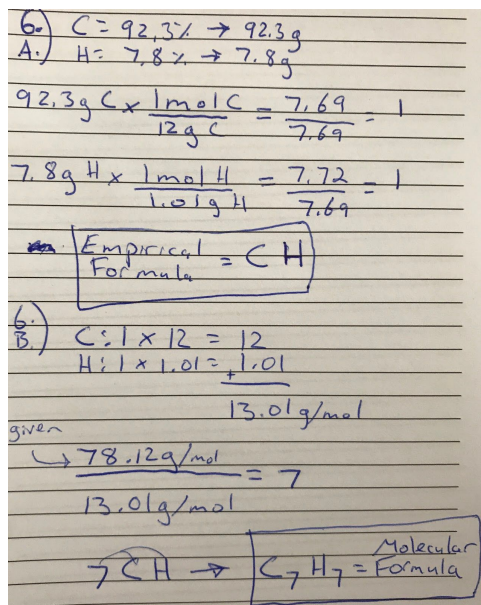 6.) C = 92.3% → 92.3g
A.) H = 7.8% → 7.8g
92.3g C x 1mol C / 12g C = 7.69 / 7.69 = 1
7.8g H x 1mol H / 1.01g H = 7.72 / 7.69 = 1
Empirical Formula = CH
6.
B.) C: 1 x 12 = 12
H: 1 x 1.01 = + 1.01
13.01 g/mol
given
↳ 78.12g/mol / 13.01g/mol = 7
7CH → C₇H₇ = Molecular Formula